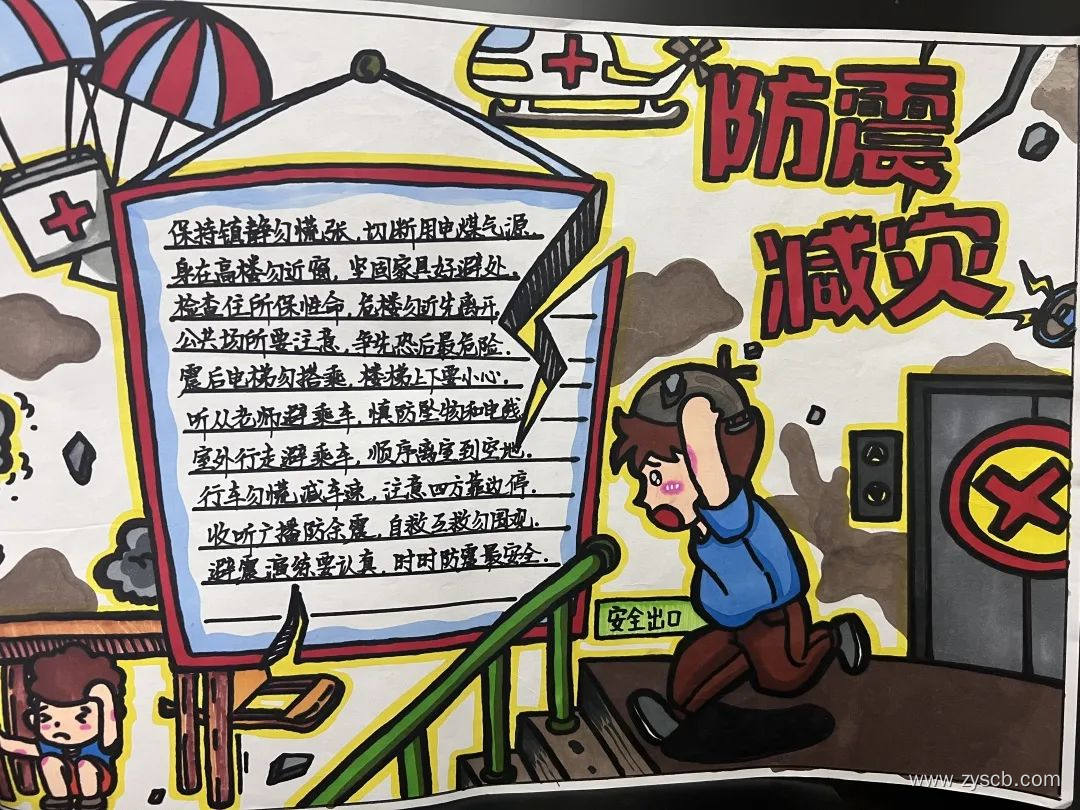 防震
减灾
保持镇静勿慌张，切断用电煤气源。
身在高楼勿近窗，坚固家具好避处。
检查住所保性命，危楼勿听先离开。
公共场所要注意，争先恐后最危险。
震后电梯勿搭乘，楼梯上下要小心。
听从老师避乘车，慎防坠物和电线
室外行走避乘车，顺序离室到空地。
行车勿慌减车速，注意四方靠边停。
收听广播防余震，自救互救勿围观。
避震演练要认真，时时防震最安全。
安全出口
www.zyscb.com